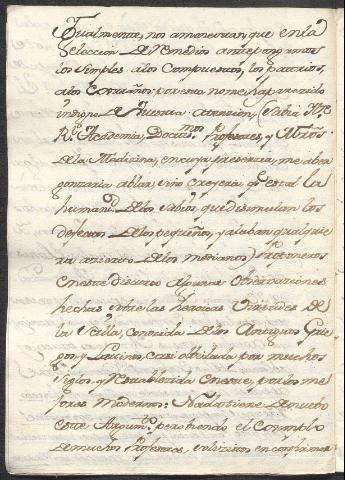 Igualmente, nos amonestan, que en la
Seleccion de remedios antepongamos
los simples a los Compuestos, los patrios,
a los Extraños: por esto, no me ha parecido
indigno de vuestra atencion, (Sabia
Rl. Academia, Doctis.mos Profesores, y
de la Medicina, en cuya presencia, me aver
gonzaria ablar, si no creyera, qe. es tal la
humanid. de los Sabios, que disimulan los
defectos de los pequeños, y alaban qualquie
ra de los medianos) Proponeros
en este discurso algunas Observaciones
hechas, sobre las heroicas Virtudes de
la conocida de los Antiguos Grie
gos, y Latinos, casi olvidada por muchos
Siglos, y restablecida en este, por los me
jores modernos: Nada tiene de nuebo
este Argumto. pero siendo el
de muchos Profesores, en confirmar